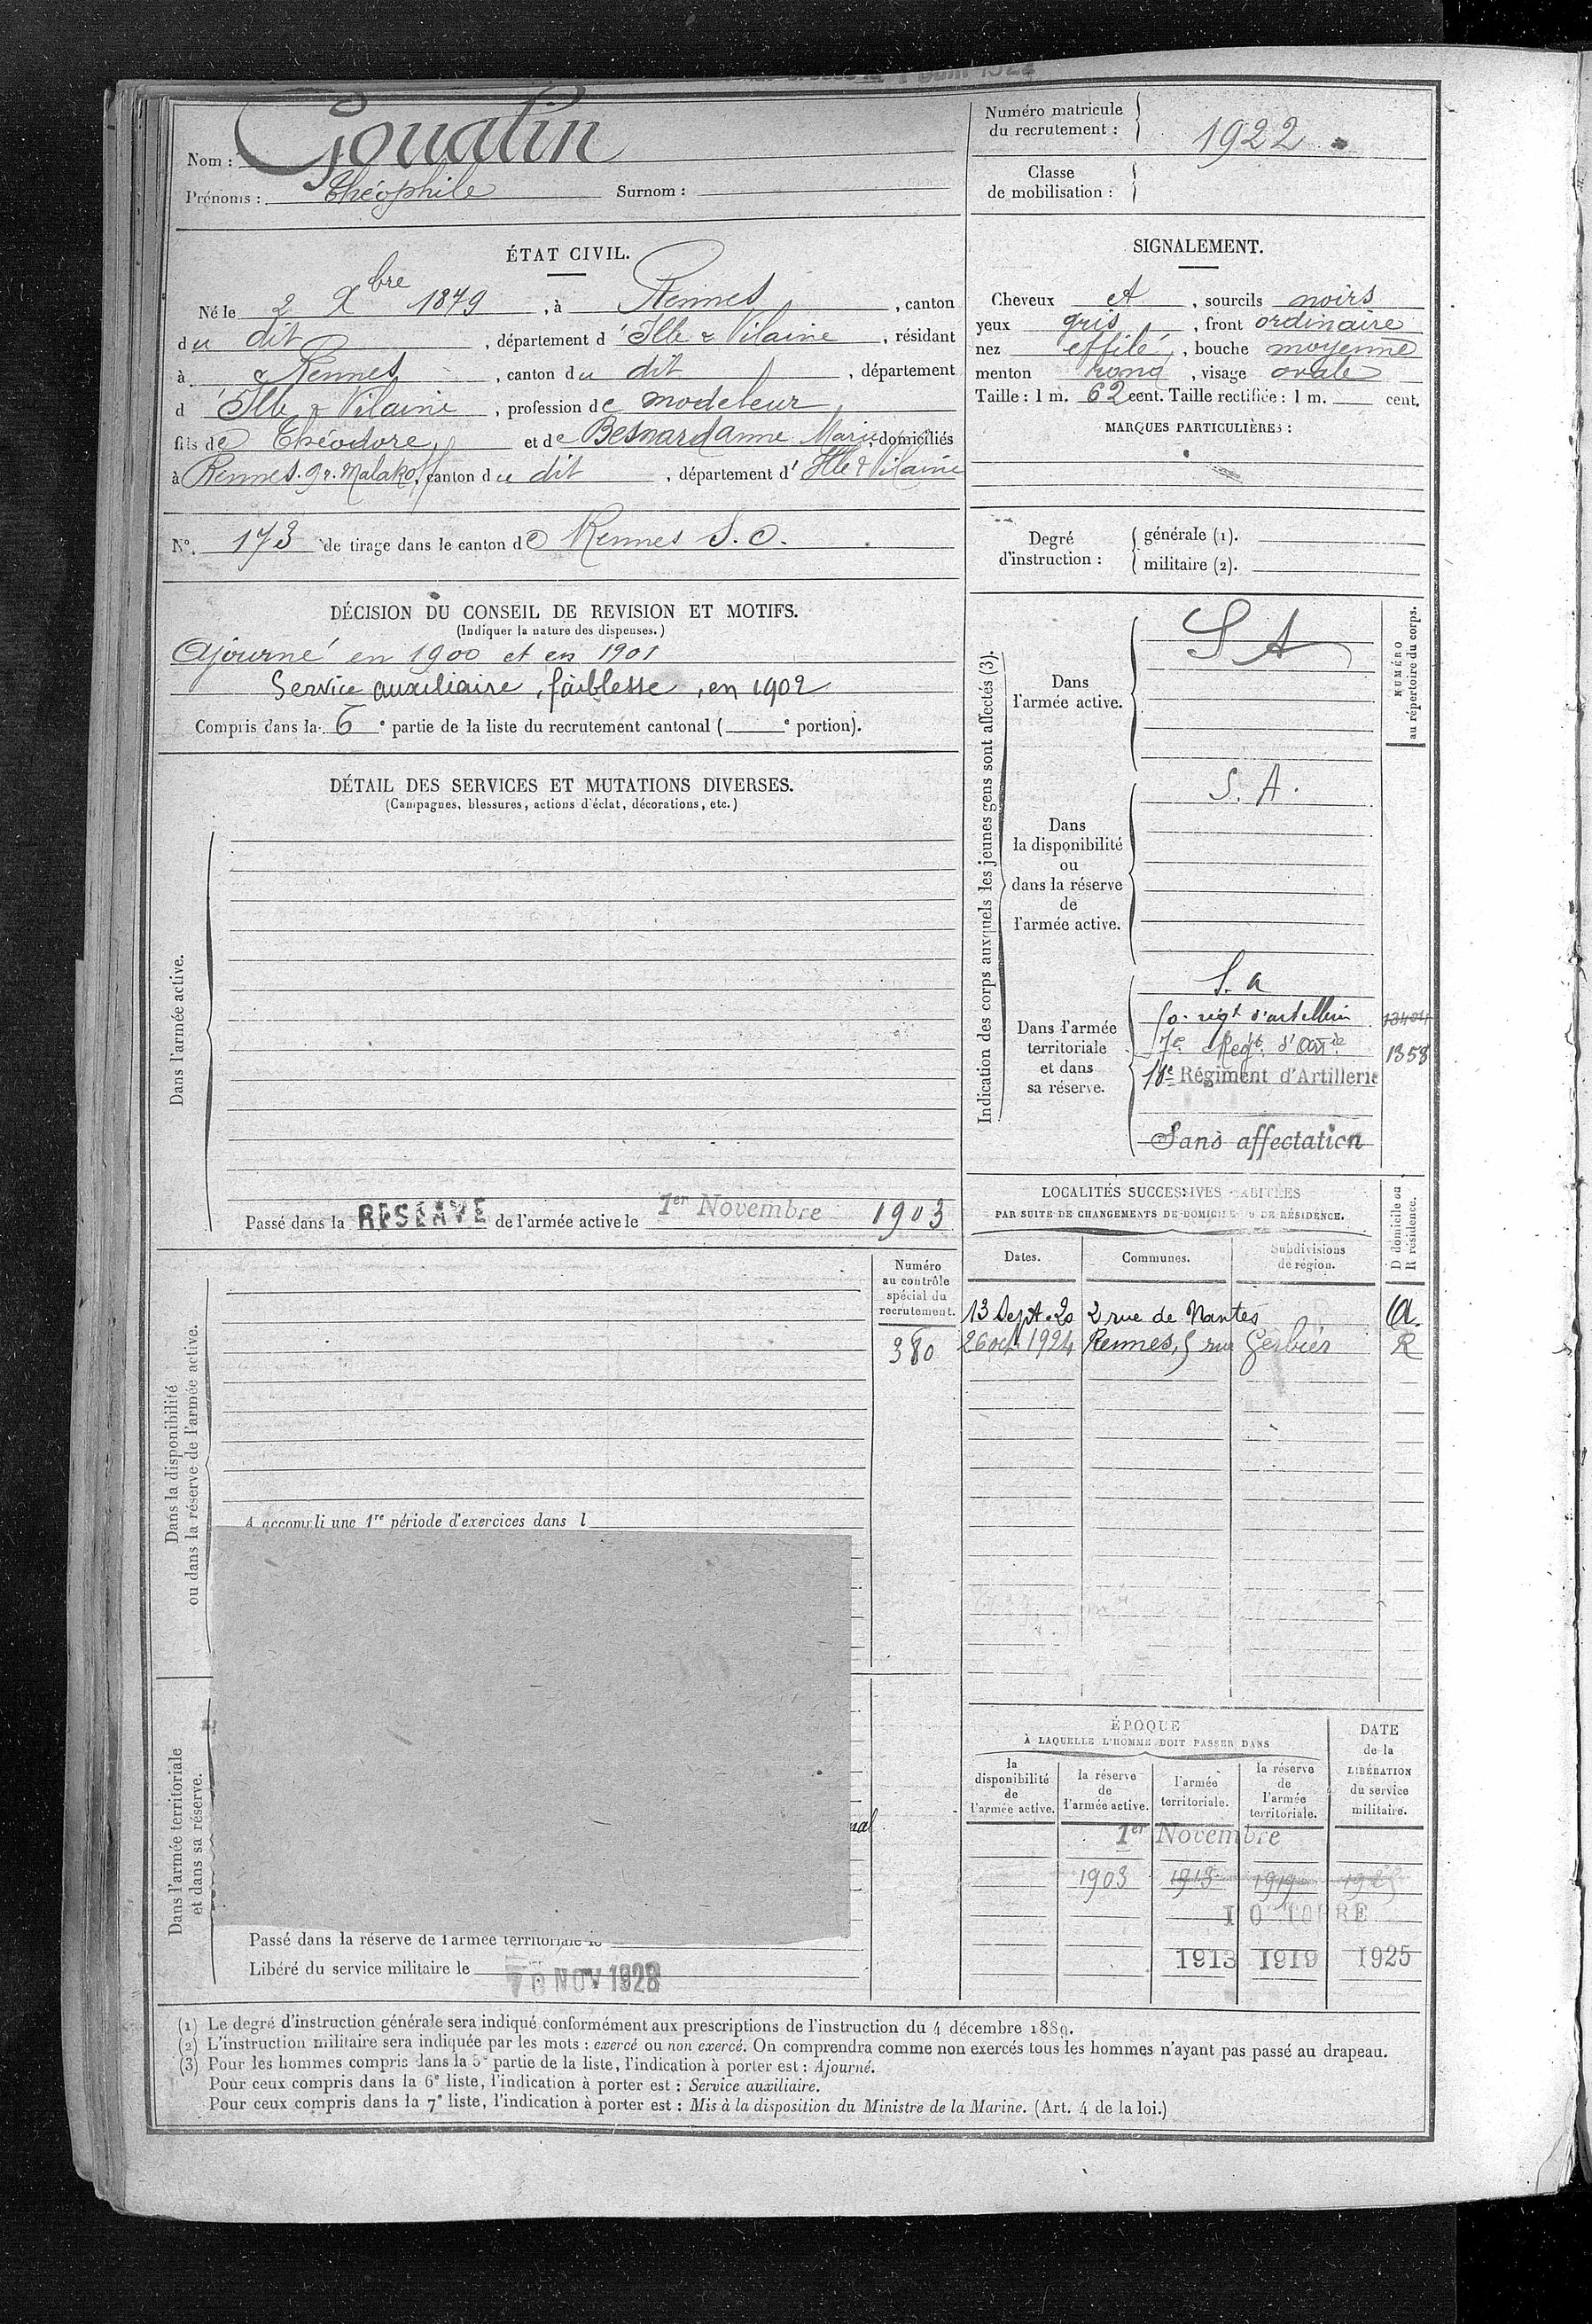 Nom : Goualin
Prénoms : Théophile Surnom :
Numéro matricule du recrutement : 1922
Classe de mobilisation :
ÉTAT CIVIL.
Né le 2 Xbre 1879, à Rennes, canton
du dit, département d'Ille & Vilaine, résidant
à Rennes, canton du dit, département
d'Ille & Vilaine, profession de modeleur
fils de Théodore et de Besnard Anne Marie, domiciliés
à Rennes. Gr. Malakoff, canton du dit, département d'Ille & Vilaine
N° 173 de tirage dans le canton de Rennes S. O.
SIGNALEMENT.
Cheveux et, sourcils noirs
yeux gris, front ordinaire
nez effilé, bouche moyenne
menton rond, visage ovale
Taille : 1 m. 62 cent. Taille rectifiée : 1 m. cent.
MARQUES PARTICULIÈRES :
Degré d'instruction :
générale (1).
militaire (2).
DÉCISION DU CONSEIL DE REVISION ET MOTIFS.
(Indiquer la nature des dispenses.)
Ajourné en 1900 et en 1901
Service auxiliaire, faiblesse, en 1902
Compris dans la 6e partie de la liste du recrutement cantonal ( e portion).
DÉTAIL DES SERVICES ET MUTATIONS DIVERSES.
(Campagnes, blessures, actions d'éclat, décorations, etc.)
Dans l'armée active.
Passé dans la RESERVE de l'armée active le 1er Novembre 1903
Indication des corps auxquels les jeunes gens sont affectés (3).
NUMÉRO au répertoire du corps.
Dans l'armée active.
S A
Dans la disponibilité ou dans la réserve de l'armée active.
S. A.
Dans l'armée territoriale et dans sa réserve.
S. a
50e régt d'artillerie 13404
7e Régt d'Artie 1358
Régiment d'Artillerie
Sans affectation
LOCALITÉS SUCCESSIVES HABITÉES
PAR SUITE DE CHANGEMENTS DE DOMICILE OU DE RÉSIDENCE.
Dates. Communes. Subdivisions de région. D domicile ou R résidence.
13 Sept. 20 2 rue de Nantes
26 oct 1924 Rennes, 5 rue Gerbier R
Dans la disponibilité ou dans la réserve de l'armée active.
Numéro au contrôle spécial du recrutement.
380
A accompli une 1re période d'exercices dans l
Dans l'armée territoriale et dans sa réserve.
nal
Passé dans la réserve de l'armée territoriale le
Libéré du service militaire le NOV 1928
ÉPOQUE
À LAQUELLE L'HOMME DOIT PASSER DANS
la disponibilité de l'armée active.
la réserve de l'armée active.
l'armée territoriale.
la réserve de l'armée territoriale.
DATE de la LIBÉRATION du service militaire.
1er Novembre
1903 1913 1919 1925
OCTOBRE
1913 1919 1925
(1) Le degré d'instruction générale sera indiqué conformément aux prescriptions de l'instruction du 4 décembre 1889.
(2) L'instruction militaire sera indiquée par les mots : exercé ou non exercé. On comprendra comme non exercés tous les hommes n'ayant pas passé au drapeau.
(3) Pour les hommes compris dans la 5e partie de la liste, l'indication à porter est : Ajourné.
Pour ceux compris dans la 6e liste, l'indication à porter est : Service auxiliaire.
Pour ceux compris dans la 7e liste, l'indication à porter est : Mis à la disposition du Ministre de la Marine. (Art. 4 de la loi.)